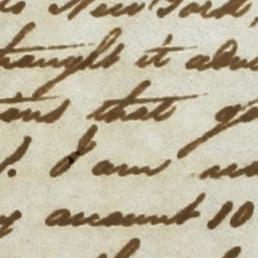 New York,
thought it adv
ions that go
. I am no
y amount 10